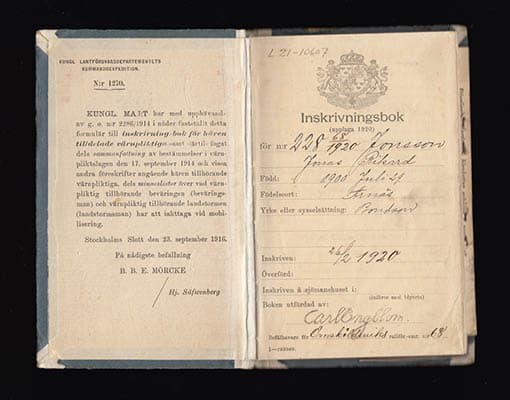 KUNGL LANTFÖRSVARSDEPARTEMENTETS
KOMMANDOEXPEDITION.
N:r 1270.
KUNGL. MAJ:T har med upphävand-
av g. o. nr 2286/1914 i nåder fastställt detta
formulär till inskrivning-bok för hären
tilldelade värnpliktiga samt därtill fogat
dels sammanfattning av bestämmelser i värn-
pliktslagen den 17. september 1914 och vissa
andra föreskrifter angående hären tillhörande
värnpliktiga, dels minneslistor över vad värn-
pliktig tillhörande beväringen (bevärings-
man) och värnpliktig tillhörande landstormen
(landstormsman) har att iakttaga vid mobi-
lisering.
Stockholms Slott den 23. september 1916.
På nådigste befallning
B. B. E. MÖRCKE
Hj. Säfwenberg
L 21-10607
Inskrivningsbok
(upplaga 1920)
för nr 228 68/1920 Jonsson
Jonas Rikard
Född: 1900 Juli 21
Födelseort: Arnäs
Yrke eller sysselsättning: Bondson
Inskriven: 26/2 1920
Överförd:
Inskriven å sjömanshuset i:
(införes med blyerts)
Boken utfärdad av:
Carl Engblom.
Befälhavare för Örnsköldsviks rullför.-omr. nr 68